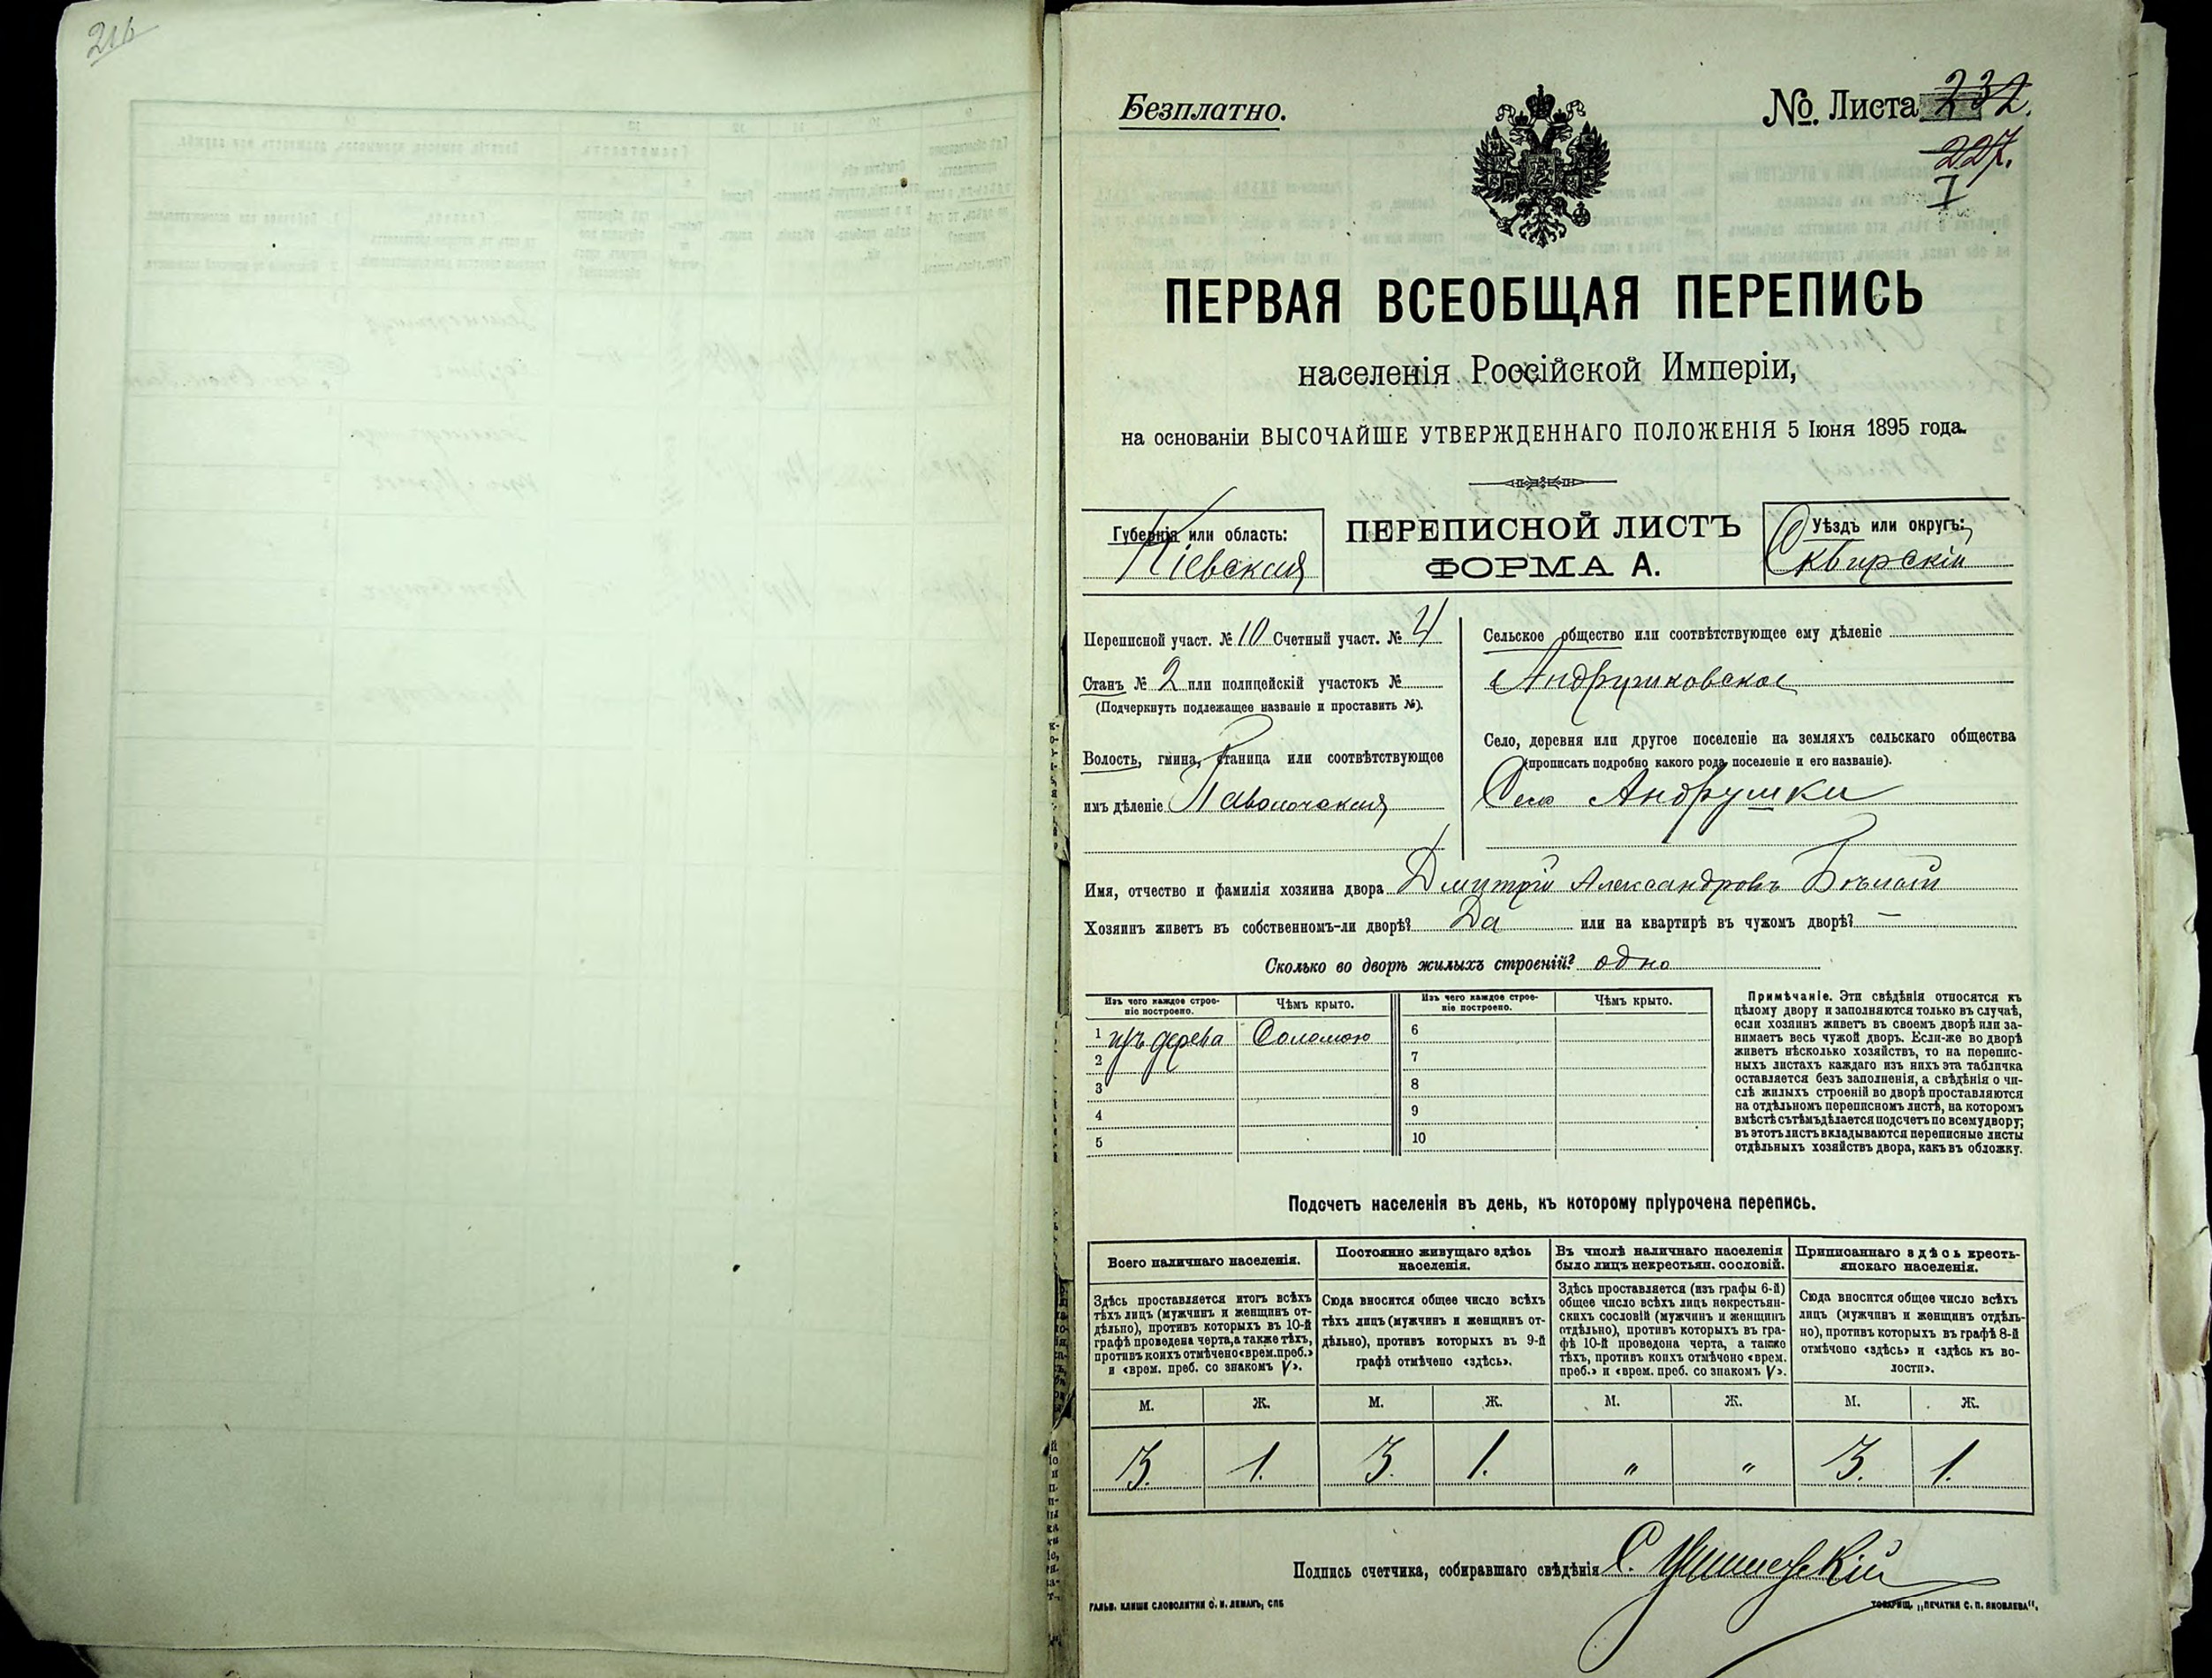 216
Безплатно.
№ Листа 232.
227.
I
ПЕРВАЯ ВСЕОБЩАЯ ПЕРЕПИСЬ
населенія Россійской Имперіи,
на основаніи ВЫСОЧАЙШЕ УТВЕРЖДЕННАГО ПОЛОЖЕНІЯ 5 Іюня 1895 года.
Губернія или область:
Кіевская
ПЕРЕПИСНОЙ ЛИСТЪ
ФОРМА А.
Уѣздъ или округъ:
Сквирскій
Переписной участ. № 10 Счетный участ. № 4
Станъ № 2 или полицейскій участокъ №
(Подчеркнуть подлежащее названіе и проставить №).
Волость, гмина, станица или соотвѣтствующее
имъ дѣленіе Паволочская
Сельское общество или соотвѣтствующее ему дѣленіе
Андрушковское
Село, деревня или другое поселеніе на земляхъ сельскаго общества
(прописать подробно какого рода поселеніе и его названіе).
Село Андрушки
Имя, отчество и фамилія хозяина двора Дмитрій Александровъ
Хозяинъ живетъ въ собственномъ-ли дворѣ? Да или на квартирѣ въ чужомъ дворѣ? —
Сколько во дворѣ жилыхъ строеній? одно
Изъ чего каждое строе-
ніе построено.
Чѣмъ крыто.
Изъ чего каждое строе-
ніе построено.
Чѣмъ крыто.
1 изъ дерева Соломою 6
2 7
3 8
4 9
5 10
Примѣчаніе. Эти свѣдѣнія относятся къ
цѣлому двору и заполняются только въ случаѣ,
если хозяинъ живетъ въ своемъ дворѣ или за-
нимаетъ весь чужой дворъ. Если-же во дворѣ
живетъ нѣсколько хозяйствъ, то на перепис-
ныхъ листахъ каждаго изъ нихъ эта табличка
оставляется безъ заполненія, а свѣдѣнія о чи-
слѣ жилыхъ строеній во дворѣ проставляются
на отдѣльномъ переписномъ листѣ, на которомъ
вмѣстѣ съ тѣмъ дѣлается подсчетъ по всему двору;
въ этотъ листъ вкладываются переписные листы
отдѣльныхъ хозяйствъ двора, какъ въ обложку.
Подсчетъ населенія въ день, къ которому пріурочена перепись.
Всего наличнаго населенія.
Здѣсь проставляется итогъ всѣхъ
тѣхъ лицъ (мужчинъ и женщинъ от-
дѣльно), противъ которыхъ въ 10-й
графѣ проведена черта, а также тѣхъ,
противъ коихъ отмѣчено «врем. преб.»
и «врем. преб. со знакомъ V».
Постоянно живущаго здѣсь
населенія.
Сюда вносится общее число всѣхъ
тѣхъ лицъ (мужчинъ и женщинъ от-
дѣльно), противъ которыхъ въ 9-й
графѣ отмѣчено «здѣсь».
Въ числѣ наличнаго населенія
было лицъ некрестьян. сословій.
Здѣсь проставляется (изъ графы 6-й)
общее число всѣхъ лицъ некрестьян-
скихъ сословій (мужчинъ и женщинъ
отдѣльно), противъ которыхъ въ гра-
фѣ 10-й проведена черта, а также
тѣхъ, противъ коихъ отмѣчено «врем.
преб.» и «врем. преб. со знакомъ V».
Приписаннаго здѣсь кресть-
янскаго населенія.
Сюда вносится общее число всѣхъ
лицъ (мужчинъ и женщинъ отдѣль-
но), противъ которыхъ въ графѣ 8-й
отмѣчено «здѣсь» и «здѣсь къ во-
лости».
М. Ж. М. Ж. М. Ж. М. Ж.
3. 1. 3. 1. " " 3. 1.
Подпись счетчика, собиравшаго свѣдѣнія С.
ГАЛЬВ. КЛИШЕ СЛОВОЛИТНИ О. И. ЛЕМАНЪ, СПБ
ТОВАРИЩ. „ПЕЧАТНЯ С. П. ЯКОВЛЕВА".